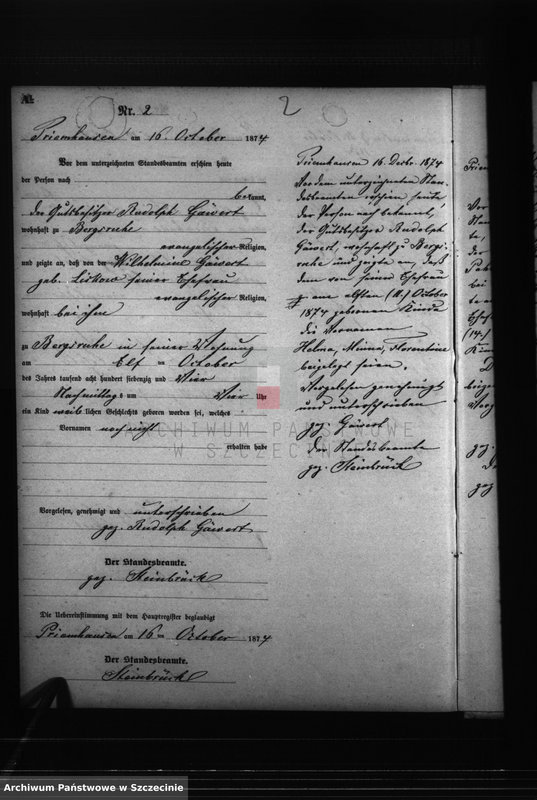 Nr. 2
2
Priemhausen am 16. October 1874
Vor dem unterzeichneten Standesbeamten erschien heute
der Person nach
bekannt,
der Gutsbesitzer Rudolph Gäwert
wohnhaft zu Bergsruhe
evangelischer Religion,
und zeigte an, daß von der Wilhelmine Gäwert
geb. Lickow seiner Ehefrau
evangelischer Religion,
wohnhaft bei ihm
zu Bergsruhe in seiner Wohnung
am Elf ten October
des Jahres tausend acht hundert siebenzig und Vier
Nachmittags um Vier Uhr
ein Kind weiblichen Geschlechts geboren worden sei, welches
Vornamen noch nicht
erhalten habe
Vorgelesen, genehmigt und unterschrieben
gez. Rudolph Gäwert
Der Standesbeamte.
gez. Steinbrück
Die Uebereinstimmung mit dem Hauptregister beglaubigt
Priemhausen am 16 ten October 1874
Der Standesbeamte.
Steinbrück
Priemhausen 16. Decbr. 1874
Vor dem unterzeichneten Stan-
desbeamten erschien heute,
der Person nach bekannt,
der Gutsbesitzer Rudolph
Gäwert, wohnhaft zu Bergs-
ruhe und zeigte an, daß
dem von seiner Ehefrau
am elften (11.) October
1874 geborenen Kinde
die Vornamen
Helma, Minna, Florentine
beigelegt seien.
Vorgelesen genehmigt
und unterschrieben
gez. Gäwert
Der Standesbeamte
gez. Steinbrück
ARCHIWUM PAŃSTWOWE
W SZCZECINIE
Archiwum Państwowe w Szczecinie